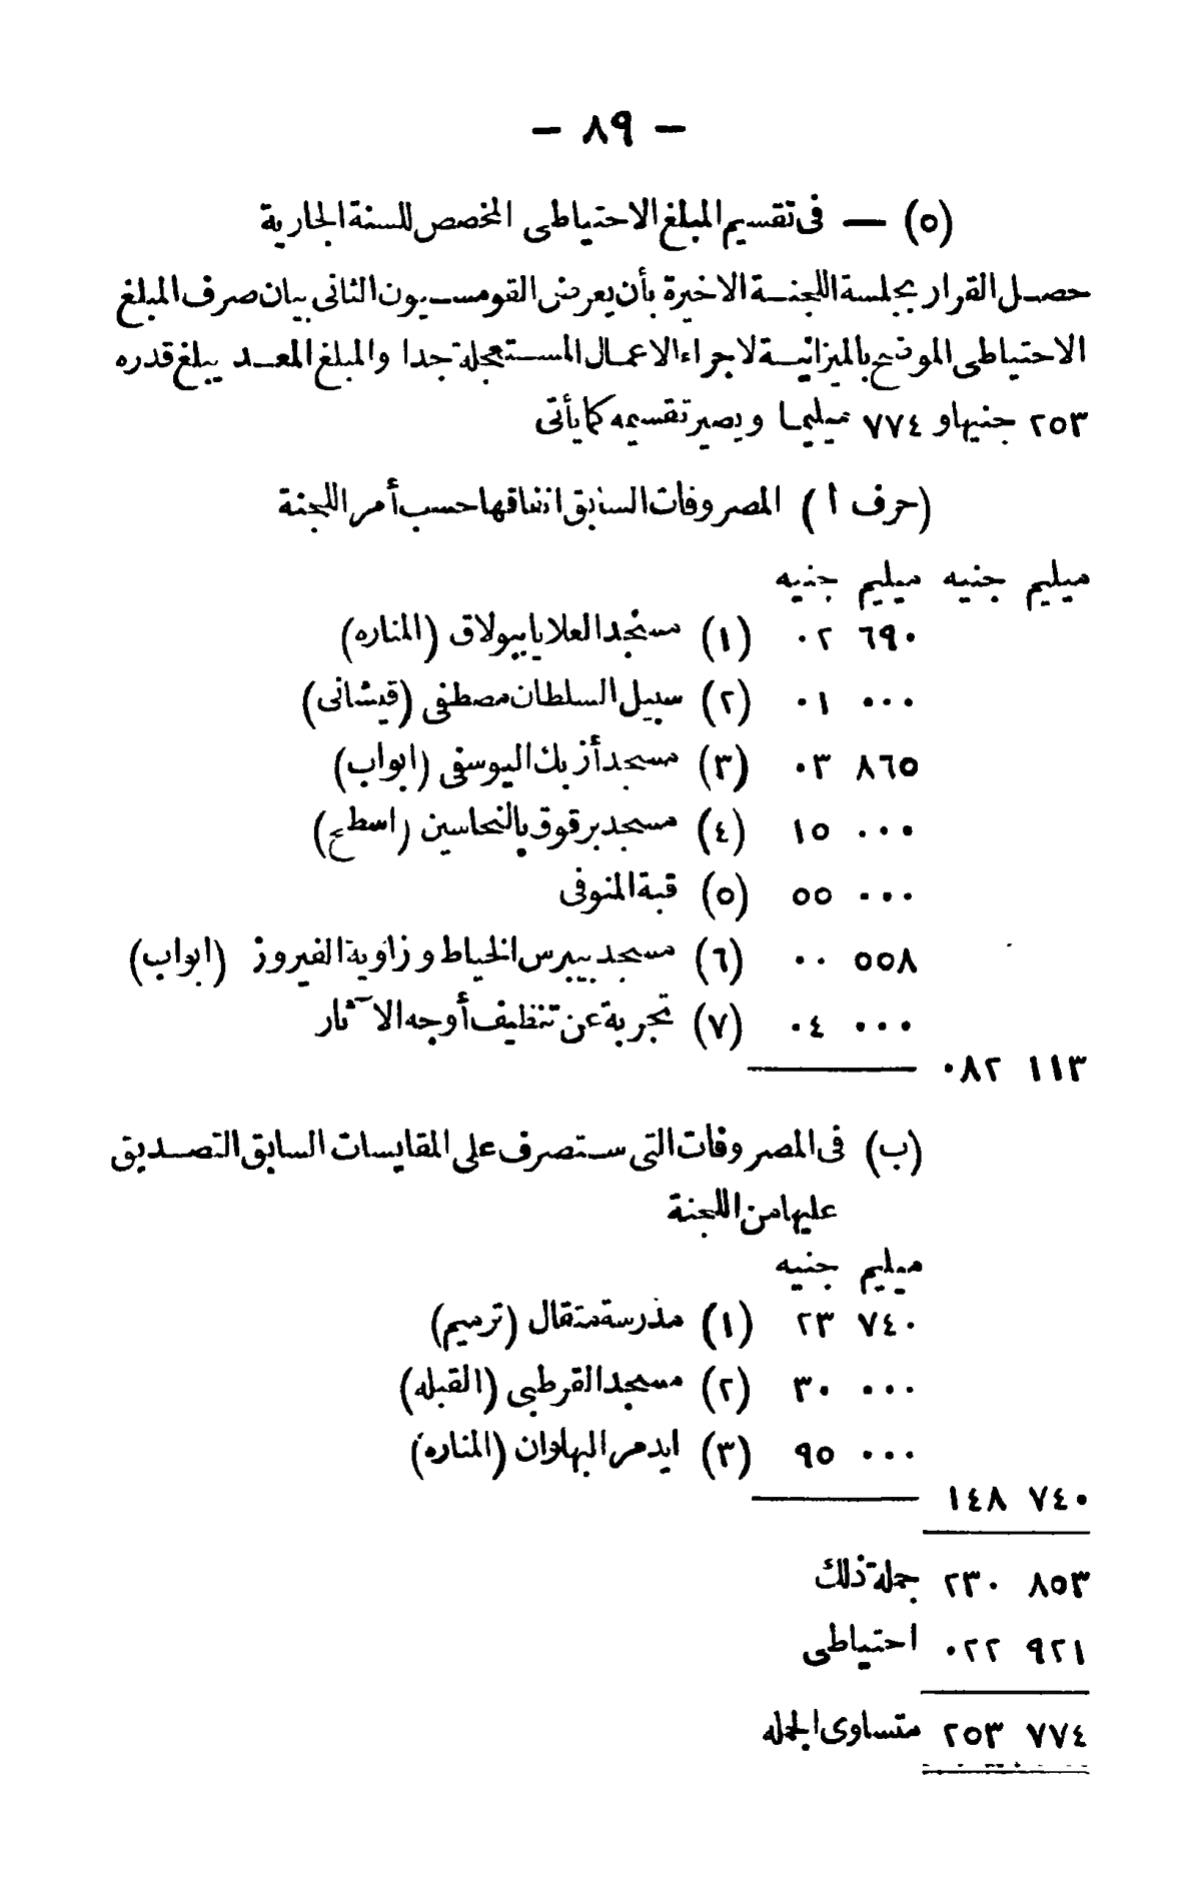 — ٨٩ —
(٥) — فى تقسيم المبلغ الاحتياطى المخصص للسنة الجارية
حصل القرار بجلسة اللجنة الاخيرة بأن يعرض القومسيون الثانى بيان صرف المبلغ
الاحتياطى الموضح بالميزانية لاجراء الاعمال المستعجلة جدا والمبلغ المعد يبلغ قدره
٢٥٣ جنيها و ٧٧٤ ميليما ويصير تقسيمه كما يأتى
(حرف ا) المصروفات السابق انفاقها حسب أمر اللجنة
ميليم جنيه ميليم جنيه
٦٩٠ ٠٢ (١) مسجد العلايا ببولاق (المناره)
٠٠٠ ٠١ (٢) سبيل السلطان مصطفى (قيشانى)
٨٦٥ ٠٣ (٣) مسجد أزبك اليوسفى (ابواب)
٠٠٠ ١٥ (٤) مسجد برقوق بالنحاسين (اسطح)
٠٠٠ ٥٥ (٥) قبة المنوفى
٥٥٨ ٠٠ (٦) مسجد بيبرس الخياط وزاوية الفيروز (ابواب)
٠٠٠ ٠٤ (٧) تجربة عن تنظيف أوجه الآثار
١١٣ ٠٨٢
(ب) فى المصروفات التى ستصرف على المقايسات السابق التصديق
عليها من اللجنة
ميليم جنيه
٧٤٠ ٢٣ (١) مدرسة متقال (ترميم)
٠٠٠ ٣٠ (٢) مسجد القرطبى (القبله)
٠٠٠ ٩٥ (٣) ايدمر البهلوان (المناره)
٧٤٠ ١٤٨
٨٥٣ ٢٣٠ جملة ذلك
٩٢١ ٠٢٢ احتياطى
٧٧٤ ٢٥٣ متساوى الجمله